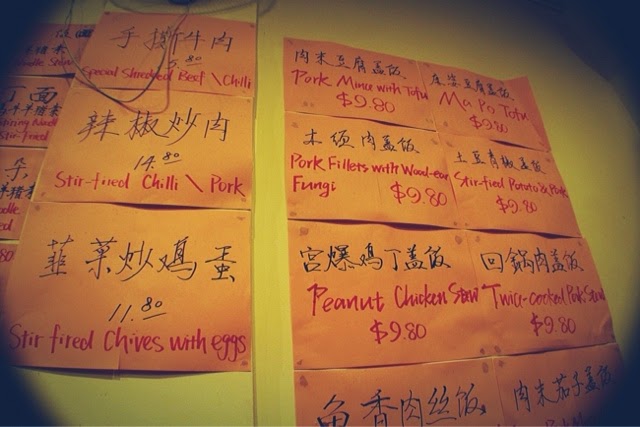 手撕牛肉
5.80
Special Shredded Beef \ Chilli
辣椒炒肉
14.80
Stir-fired Chilli \ Pork
韮菜炒鸡蛋
11.80
Stir fired Chives with eggs
肉末豆腐盖饭
Pork Mince with Tofu
$9.80
麻婆豆腐盖饭
Ma Po Tofu
$9.80
木须肉盖饭
Pork Fillets with Wood-ear
Fungi $9.80
土豆青椒盖饭
Stir-fied Potato & Pork
$9.80
宫爆鸡丁盖饭
Peanut Chicken Stew
$9.80
回鍋肉盖饭
Twice-cooked Pork
$9.80
鱼香肉丝饭
肉末茄子盖饭